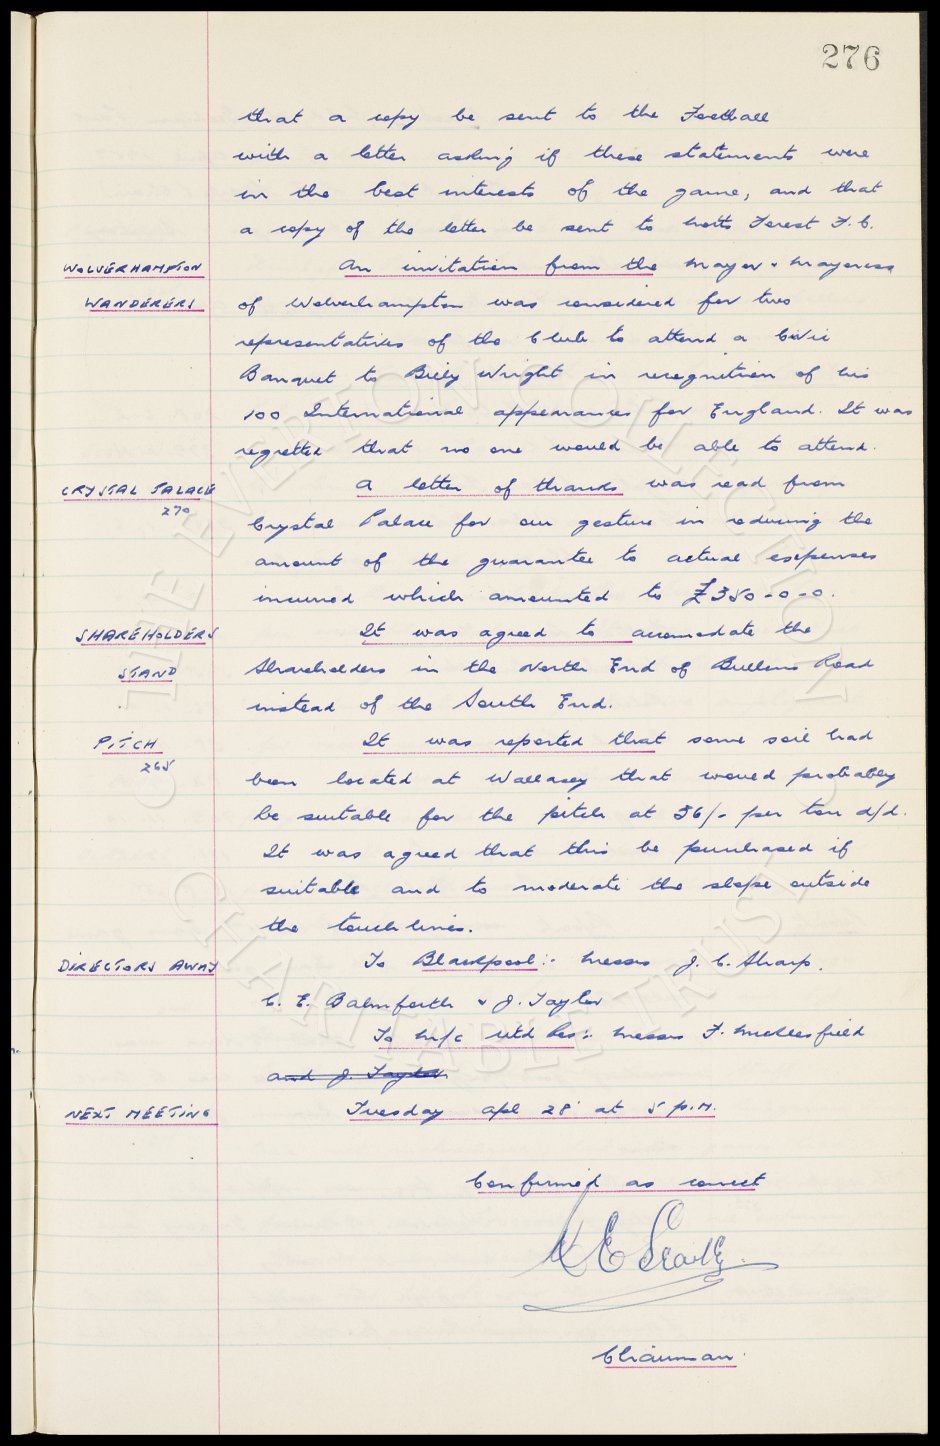 276
that a copy be sent to the Football
with a letter asking if these statements were
in the best interests of the game, and that
a copy of the letter be sent to Notts Forest F.C.
WOLVERHAMPTON An invitation from the Mayor & Mayoress
WANDERERS of Wolverhampton was considered for two
representatives of the Club to attend a Civic
Banquet to Billy Wright in recognition of his
100 International appearances for England. It was
regretted that no one would be able to attend.
CRYSTAL PALACE A letter of thanks was read from
270 Crystal Palace for our gesture in reducing the
amount of the guarantee to actual expenses
incurred which amounted to £350-0-0.
SHAREHOLDERS It was agreed to accomodate the
STAND Shareholders in the North End of Bullens Road
instead of the South End.
PITCH It was reported that some soil had
265 been located at Wallasey that would probably
be suitable for the pitch at 36/- per ton d/d.
It was agreed that this be purchased if
suitable and to moderate the slope outside
the touch lines.
DIRECTORS AWAY To Blackpool:- Messrs J. C. Sharp,
C. E. Balmforth & J. Taylor
To M/c Utd Res:- Messrs F. Micklesfield
and J. Taylor
NEXT MEETING Tuesday Apl 28' at 5 P.M.
Confirmed as correct
Chairman.
THE EVERTON COLLECTION
CHARITABLE TRUST